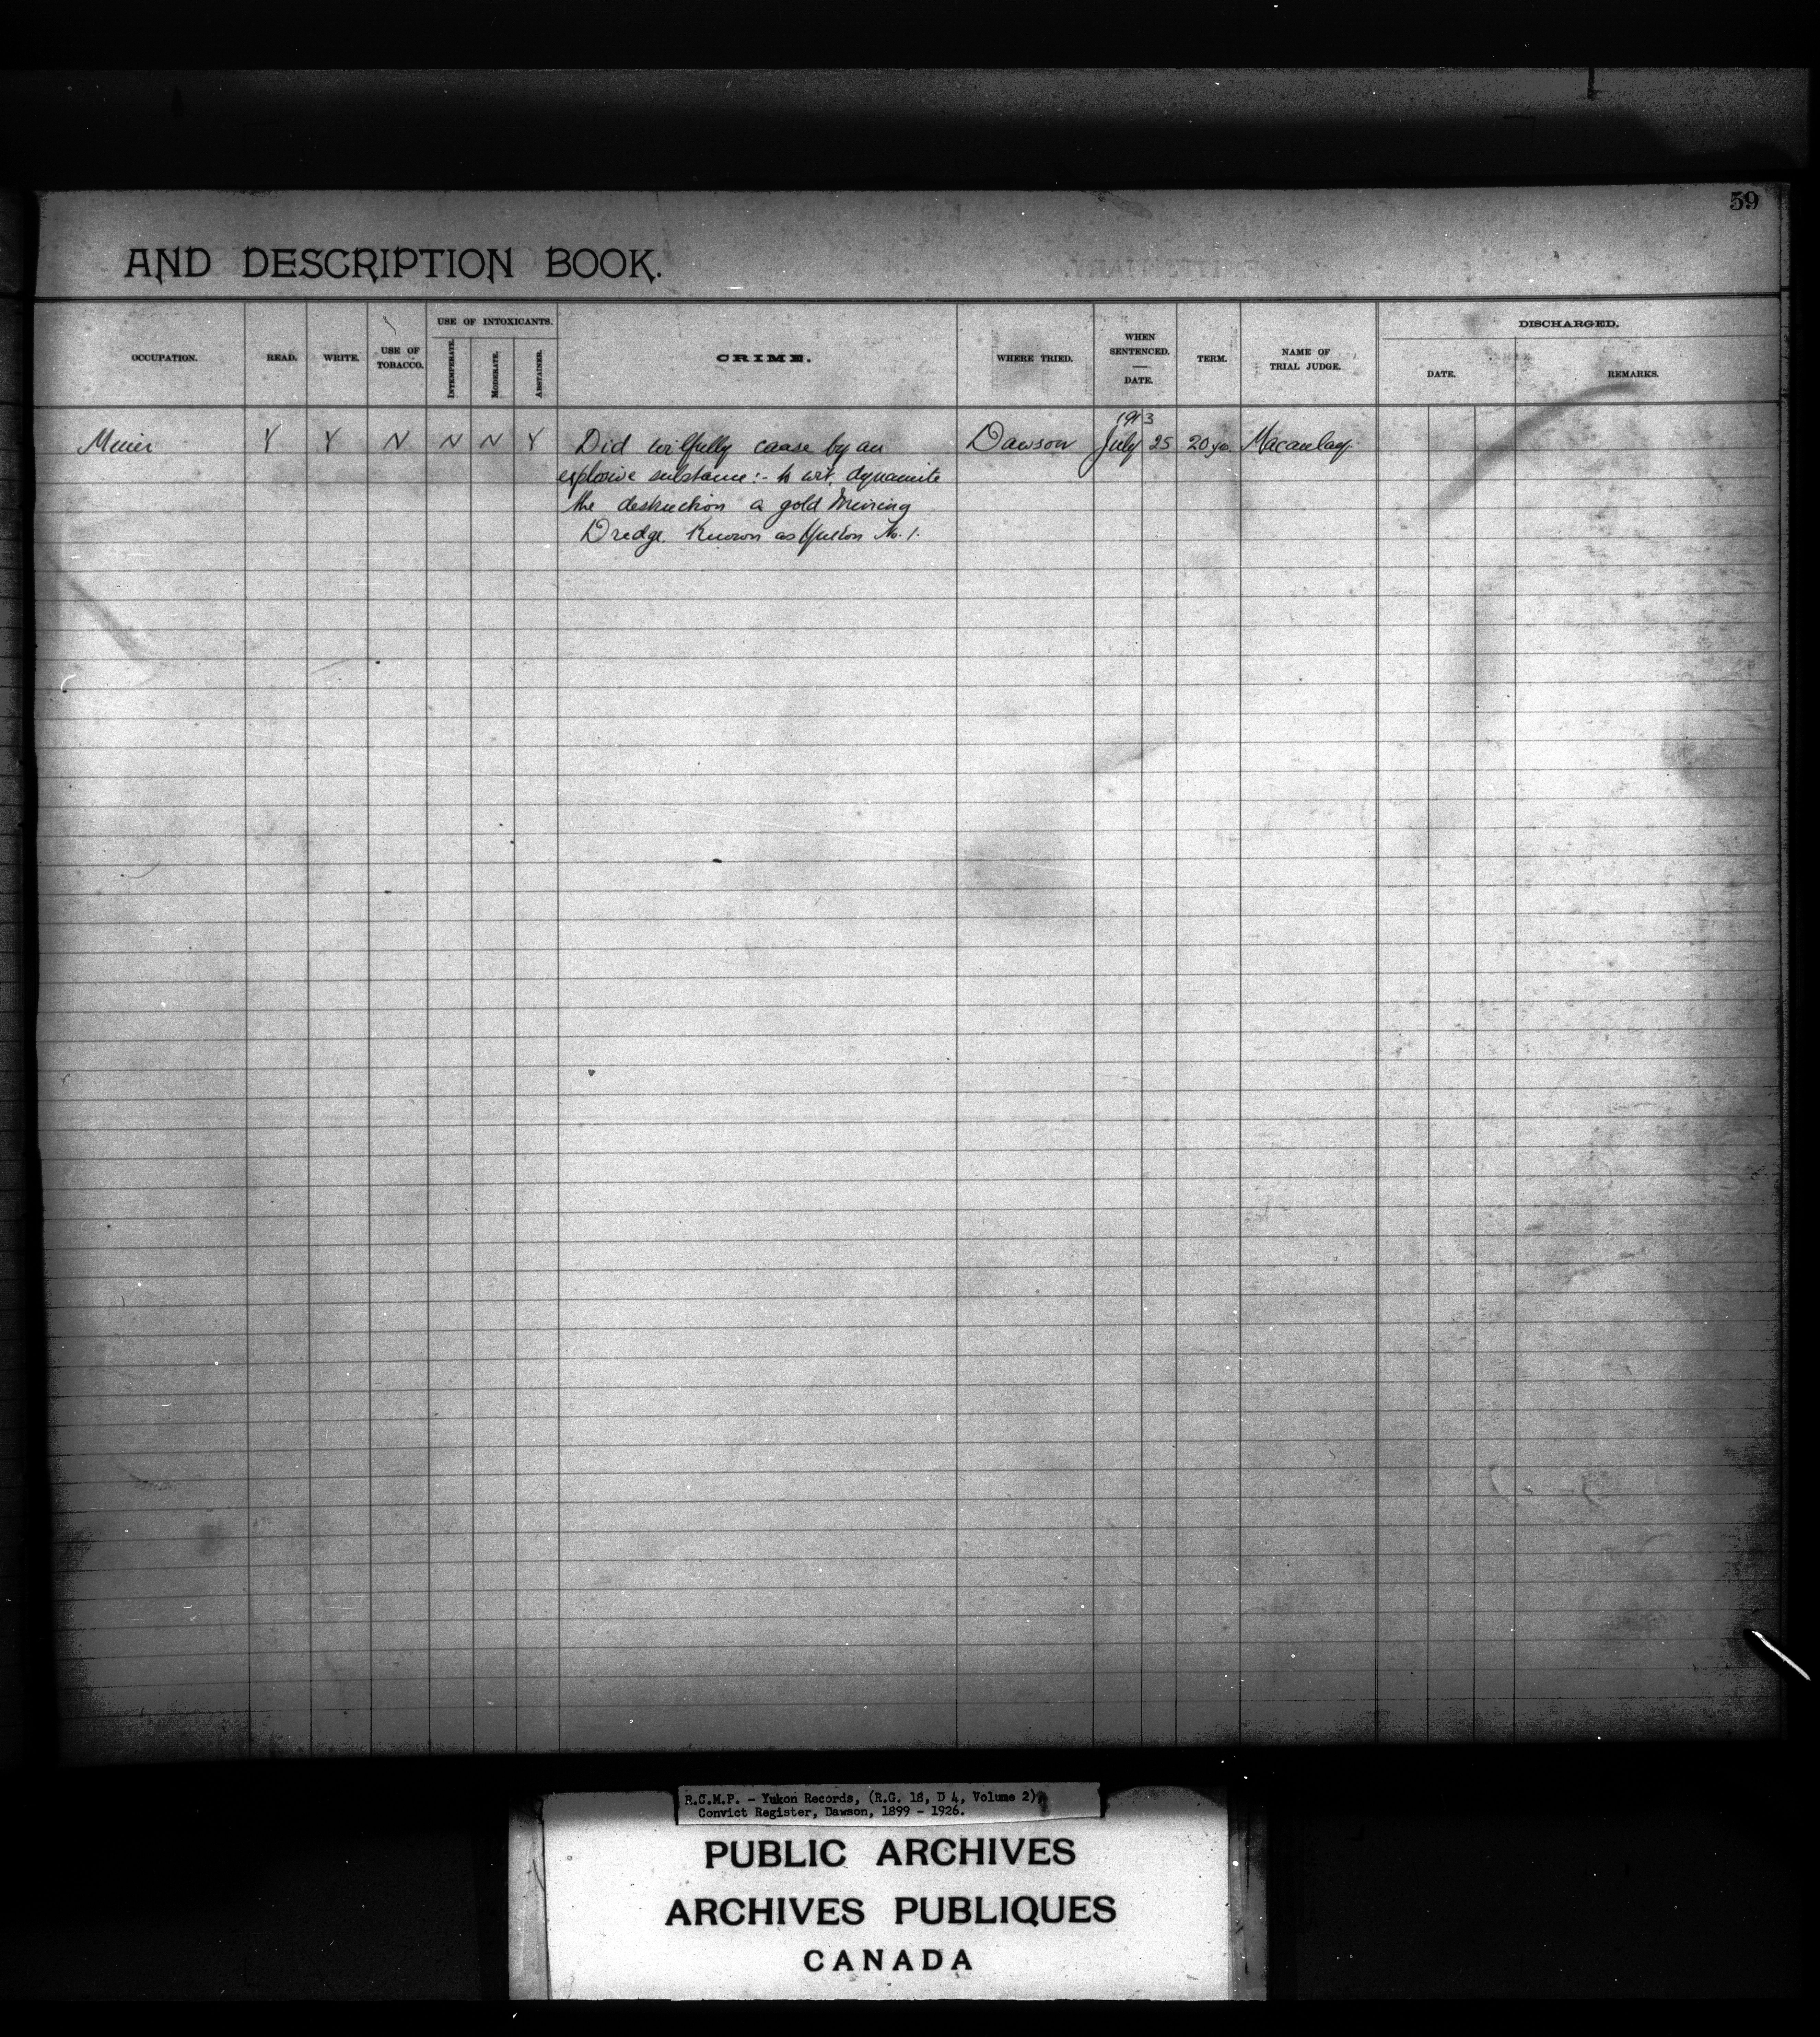 59
AND DESCRIPTION BOOK.
OCCUPATION. READ. WRITE. USE OF TOBACCO. USE OF INTOXICANTS. INTEMPERATE. MODERATE. ABSTAINER. CRIME. WHERE TRIED. WHEN SENTENCED. — DATE. TERM. NAME OF TRIAL JUDGE. DISCHARGED. DATE. REMARKS.
1913
Miner Y Y N N N Y Did wilfully cause by an Dawson July 25 20 yrs. Macaulay
explosive substance:- to wit, dynamite
the destruction a gold Mining
Dredge. Known as Yukon No. 1.
R.C.M.P. - Yukon Records, (R.G. 18, D 4, Volume 2),
Convict Register, Dawson, 1899 - 1926.
PUBLIC ARCHIVES
ARCHIVES PUBLIQUES
CANADA